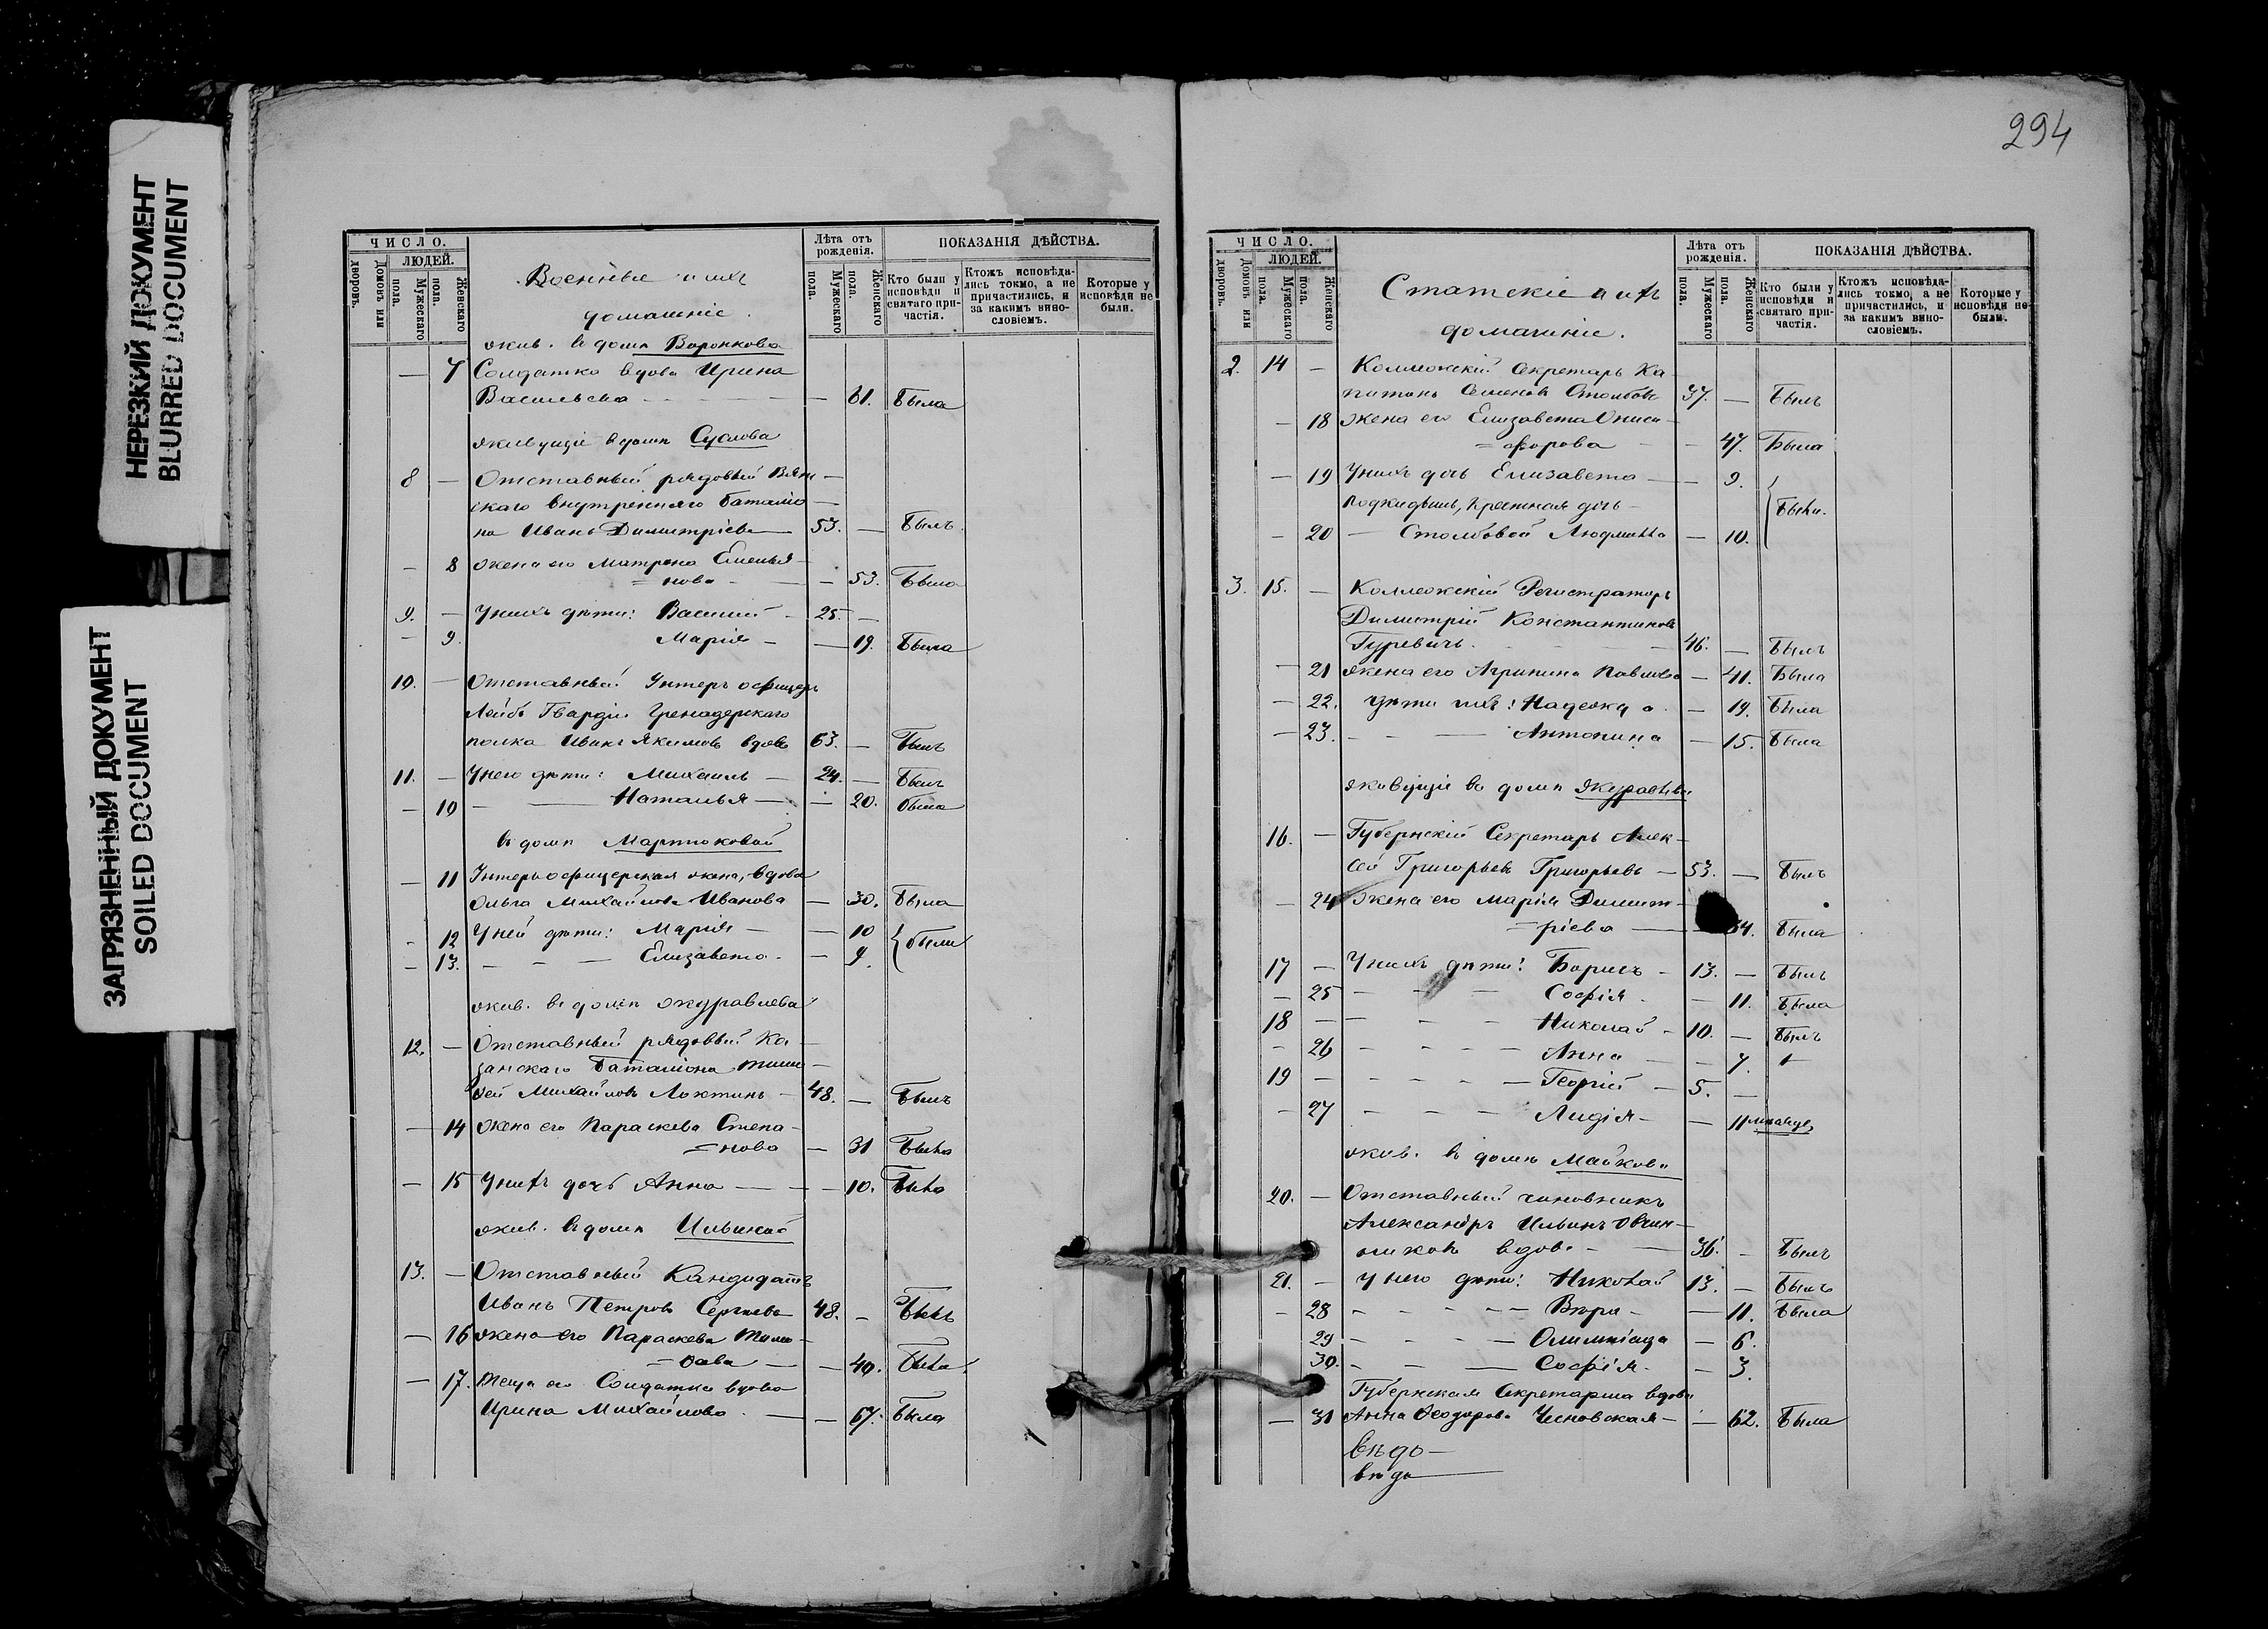 НЕРЕЗКИЙ ДОКУМЕНТ
BLURRED DOCUMENT
ЗАГРЯЗНЕННЫЙ ДОКУМЕНТ
SOILED DOCUMENT
ЧИСЛО.
ЛЮДЕЙ.
Домовъ или дворовъ.
Мужескаго пола.
Женскаго пола.
Военные и ихъ
домашніе.
Лѣта отъ рожденія.
Мужескаго пола.
Женскаго пола.
ПОКАЗАНІЯ ДѢЙСТВА.
Кто были у исповѣди и святаго причастія.
Ктожъ исповѣдались токмо, а не причастились, и за какимъ винословіемъ.
Которые у исповѣди не были.
жив. въ домѣ Воронкова
— 7 Солдатка вдова Ирина
Васильева — 61. Была
живущіе въ домѣ Суслова
8 — Отставный рядовый Вят
скаго внутренняго баталіо
на Иванъ Димитріевъ 53. — Былъ
— 8 жена его Матрона Емелья
= нова — 53. Была
9. — У нихъ дѣти: Василій 25. —
— 9. Марія — 19. Была
10. — Отставный Унтеръ офицеръ
Лейбъ Гвардіи Гренадерскаго
полка Иванъ Якимовъ вдовъ 63. — Былъ
11. — У него дѣти: Михаилъ — 24. — Былъ
— 10 — Наталья — 20. была
въ домѣ Мартюковой
— 11 Унтеръ офицерская жена, вдова
Ольга Михайлова Иванова — 30. Была
— 12 У ней дѣти: Марія — 10
— 13. — — — Елизавета — 9. были
жив. въ домѣ Журавлева
12. — Отставный рядовый Ка
занскаго Баталіона Тимо
фей Михайловъ Локтинъ — 48. — Былъ
— 14 жена его Параскева Степа
= нова — 31 Была
— 15 У нихъ дочь Анна — 10. Была
жив. въ домѣ Ильиной
13. — Отставный Кандидатъ
Иванъ Петровъ Сергѣевъ 48. — Былъ
— 16 жена его Параскева Тимо
= ѳева — 40. Была
— 17. Теща его Солдатка вдова
Ирина Михайлова — 67. Была
294
ЧИСЛО.
ЛЮДЕЙ.
Домовъ или дворовъ.
Мужескаго пола.
Женскаго пола.
Статскіе и ихъ
домашніе.
Лѣта отъ рожденія.
Мужескаго пола.
Женскаго пола.
ПОКАЗАНІЯ ДѢЙСТВА.
Кто были у исповѣди и святаго причастія.
Ктожъ исповѣдались токмо, а не причастились, и за какимъ винословіемъ.
Которые у исповѣди не были.
2. 14 — Коллежскій Секретарь Ка
питонъ Семеновъ Столбовъ 37. — Былъ
— 18 жена его Елизавета Ониси
= форова — 47. Была
— 19 У нихъ дочь Елизавета — 9.
подкидышъ, крестная дочь — Были.
— 20 — Столбовой Людмила — 10.
3. 15. — Коллежскій Регистраторъ
Димитрій Константиновъ
Гуревичъ. 46. — Былъ
— 21 жена его Агрипина Павлова — 41. Была
— 22. дѣти ихъ: Надежда — 19. Была
— 23. — — — Антонина — 15. Была
живущіе въ домѣ Журавлева
16. — Губернскій Секретарь Алек
сѣй Григорьевъ Григорьевъ — 53. — Былъ
— 24 жена его Марія Димит
= ріева — 4. Была
17 — У нихъ дѣти: Борисъ — 13. — Былъ
— 25 — — — Софія — 11. Была
18 — — — Николай — 10. — Былъ
— 26 — — — — Анна — 7.
19 — — — — Георгій — 5. —
— 27 — — — Лидія — 11
жив. въ домѣ Майкова
20. — Отставный чиновникъ
Александръ Ильинъ Овчин
никовъ вдовъ — 36. — Былъ
21. — У него дѣти: Николай 13. — Былъ
— 28 — — — — Вѣра — 11. Была
29 — — — — Олимпіада — 6.
30. — — — Софія — 3.
Губернская Секретарша вдова
— 31 Анна Ѳеодорова Чесновская — 62. Была